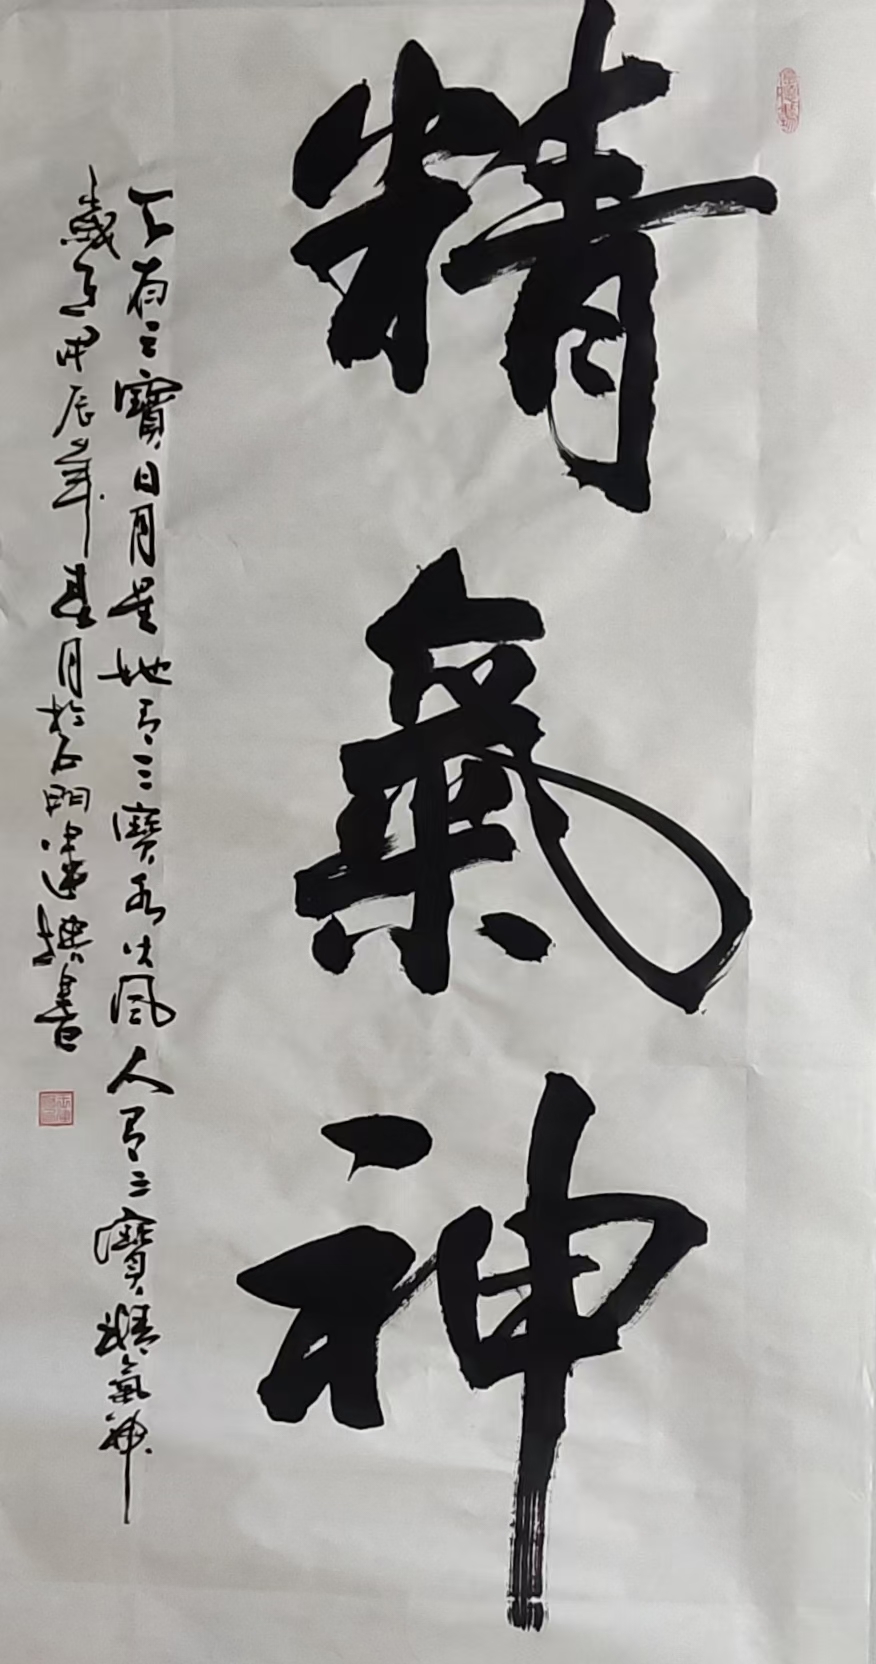 精氣神
天有三寶日月星地有三寶水火風人有三寶精氣神
歲在甲辰年 月於石門 書